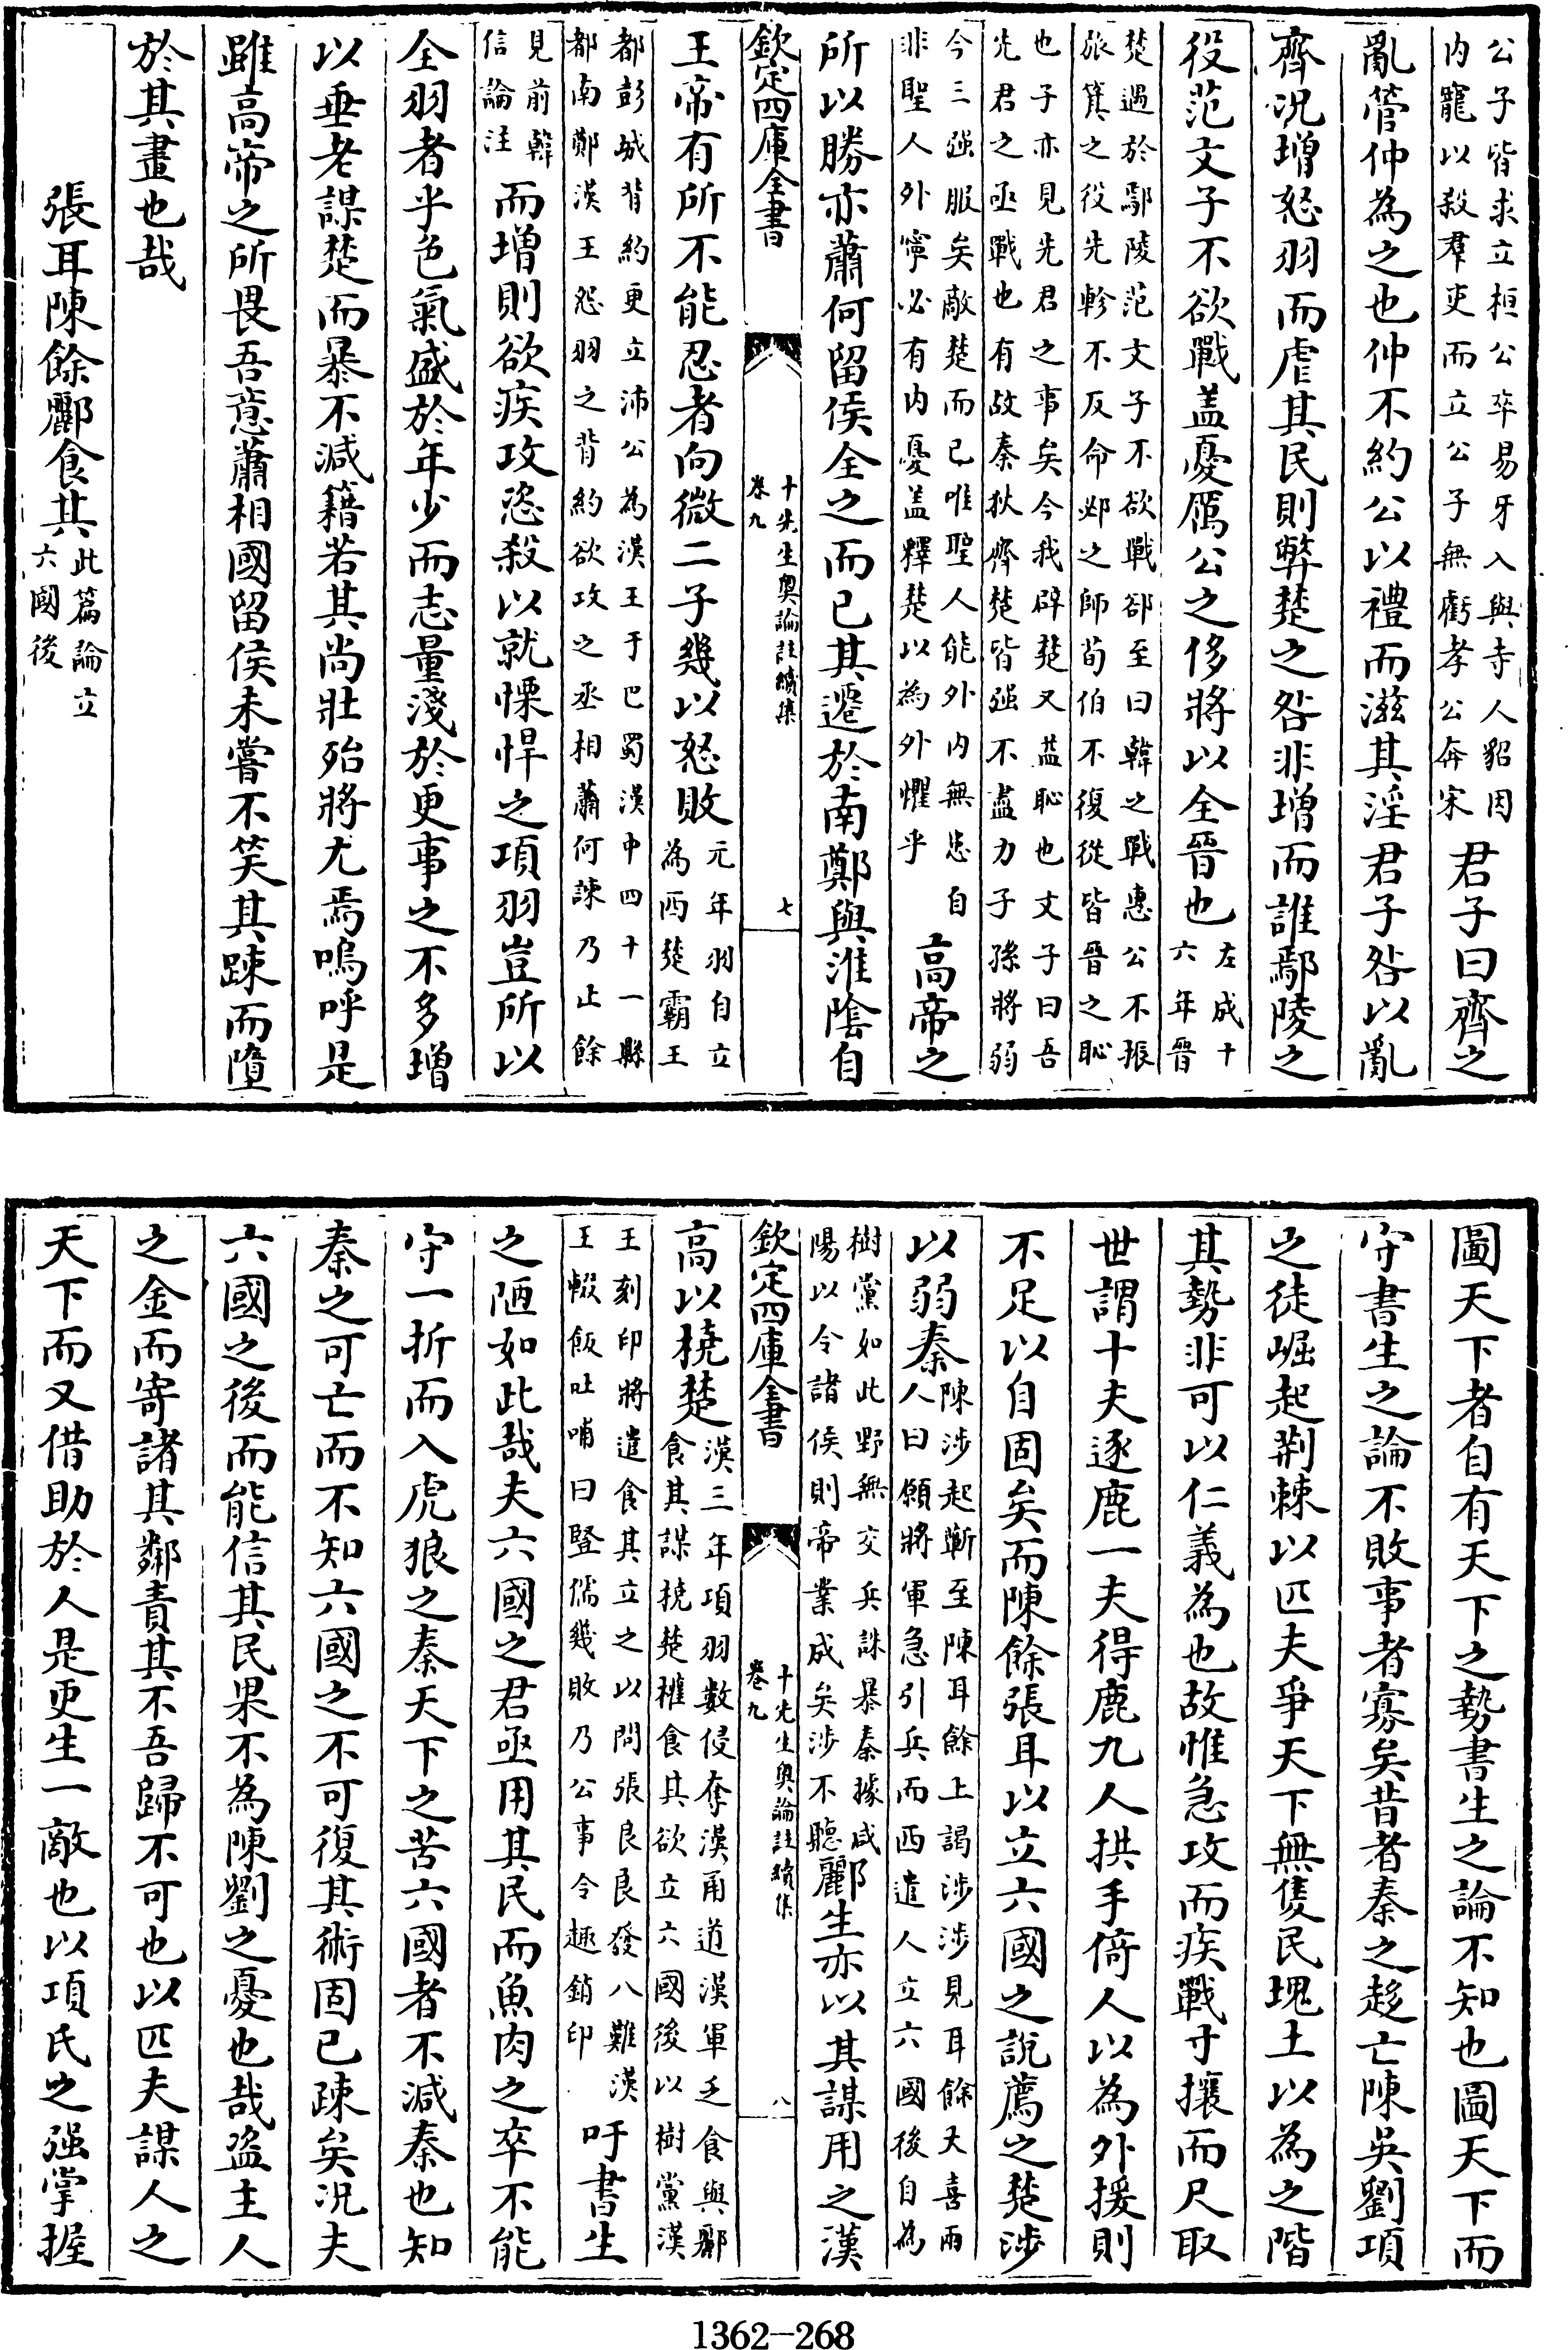 公子皆求立桓公卒易牙入與寺人貂因
内寵以殺羣吏而立公子無虧孝公奔宋
君子曰齊之
亂管仲為之也仲不約公以禮而滋其淫君子咎以亂
齊况增怒羽而虐其民則弊楚之咎非增而誰鄢陵之
役范文子不欲戰盖憂厲公之侈將以全晉也
左成十
六年晉
楚遇於鄢陵范文子不欲戰郤至曰韓之戰惠公不振
旅箕之役先軫不反命邲之師荀伯不復從皆晉之恥
也子亦見先君之事矣今我辟楚又益恥也文子曰吾
先君之亟戰也有故秦狄齊楚皆强不盡力子孫將弱
今三强服矣敵楚而已唯聖人能外内無患自
非聖人外寧必有内憂盖釋楚以為外懼乎
高帝之
所以勝亦蕭何留侯全之而已其遷於南鄭與淮陰自
欽定四庫全書
十先生奥論註續集
卷九
七
王帝有所不能忍者向微二子幾以怒敗
元年羽自立
為西楚霸王
都彭城背約更立沛公為漢王于巴蜀漢中四十一縣
都南鄭漢王怨羽之背約欲攻之丞相蕭何諫乃止餘
見前韓
信論注
而增則欲疾攻恣殺以就慓悍之項羽豈所以
全羽者乎色氣盛於年少而志量淺於更事之不多增
以垂老謀楚而暴不減籍若其尚壯殆將尤焉嗚呼是
雖高帝之所畏吾意蕭相國留侯未嘗不笑其踈而墮
於其畫也哉
張耳陳餘酈食其
此篇論立
六國後
圖天下者自有天下之勢書生之論不知也圖天下而
守書生之論不敗事者寡矣昔者秦之趍亡陳吳劉項
之徒崛起荆棘以匹夫爭天下無隻民塊土以為之階
其勢非可以仁義為也故惟急攻而疾戰寸攘而尺取
世謂十夫逐鹿一夫得鹿九人拱手倚人以為外援則
不足以自固矣而陳餘張耳以立六國之說薦之楚涉
以弱秦
陳涉起蘄至陳耳餘上謁涉涉見耳餘大喜兩
人曰願將軍急引兵而西遣人立六國後自為
樹黨如此野無交兵誅暴秦據咸
陽以令諸侯則帝業成矣涉不聽
酈生亦以其謀用之漢
欽定四庫全書
十先生奥論註續集
卷九
八
高以撓楚
漢三年項羽數侵奪漢甬道漢軍乏食與酈
食其謀撓楚權食其欲立六國後以樹黨漢
王刻印將遣食其立之以問張良良發八難漢
王輟飯吐哺曰豎儒幾敗乃公事令趣銷印
吁書生
之陋如此哉夫六國之君亟用其民而魚肉之卒不能
守一折而入虎狼之秦天下之苦六國者不減秦也知
秦之可亡而不知六國之不可復其術固已疎矣况夫
六國之後而能信其民果不為陳劉之憂也哉盗主人
之金而寄諸其鄰責其不吾歸不可也以匹夫謀人之
天下而又借助於人是更生一敵也以項氏之强掌握
1362-268